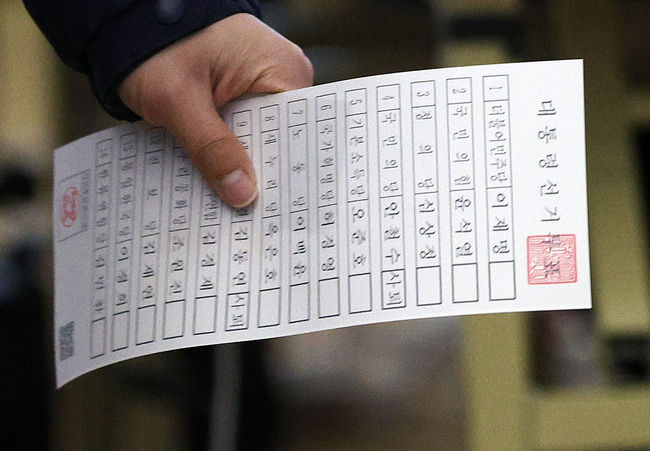 대통령선거투표
1 더불어민주당 이재명
2 국민의힘 윤석열
3 정의당 심상정
4 국민의당 안철수 사퇴
5 기본소득당 오준호
6 국가혁명당 허경영
7 노동당 이백윤
8 새누리당 옥은호
9 김동연 사퇴
김경재
조원진
김재연
이경희
김민찬